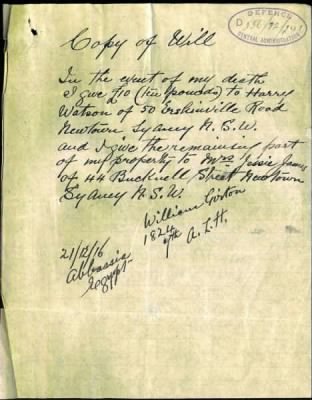 DEFENCE
CENTRAL ADMINISTRATION
Copy of Will
In the event of my death
I give £10 (ten pounds) to Harry
Watson of 50 Erskinville Road
Newtown Sydney N.S.W.
and I give the remaining part
of my property to Mrs Jessie James
of 44 Bucknell Street Newtown
Sydney N.S.W.
William
1824
7th A.L.H.
21/12/16
Abbassia
Egypt